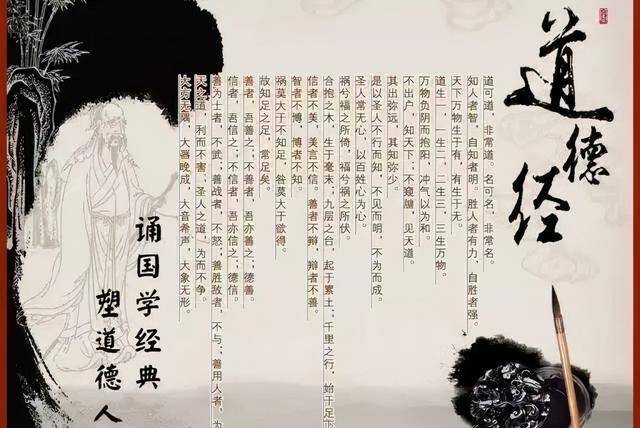 道德经
道可道，非常道。名可名，非常名。
知人者智，自知者明。胜人者有力，自胜者强。
天下万物生于有，有生于无。
道生一，一生二，二生三，三生万物。
万物负阴而抱阳，冲气以为和。
不出户，知天下；不窥牖，见天道。
其出弥远，其知弥少。
是以圣人不行而知，不见而明，不为而成。
圣人常无心，以百姓心为心。
祸兮福之所倚，福兮祸之所伏。
合抱之木，生于毫末；九层之台，起于累土；千里之行，始于足下
信者不美，美言不信。善者不辩，辩者不善。
智者不博，博者不知。
祸莫大于不知足，咎莫大于欲得。
故知足之足，常足矣。
善者，吾善之；不善者，吾亦善之；德善。
信者，吾信之；不信者，吾亦信之；德信。
善为士者，不武；善战者，不怒；善胜敌者，不与；善用人者，为
天之道，利而不害；圣人之道，为而不争。
大方无隅，大器晚成，大音希声，大象无形。
诵国学经典
塑道德人